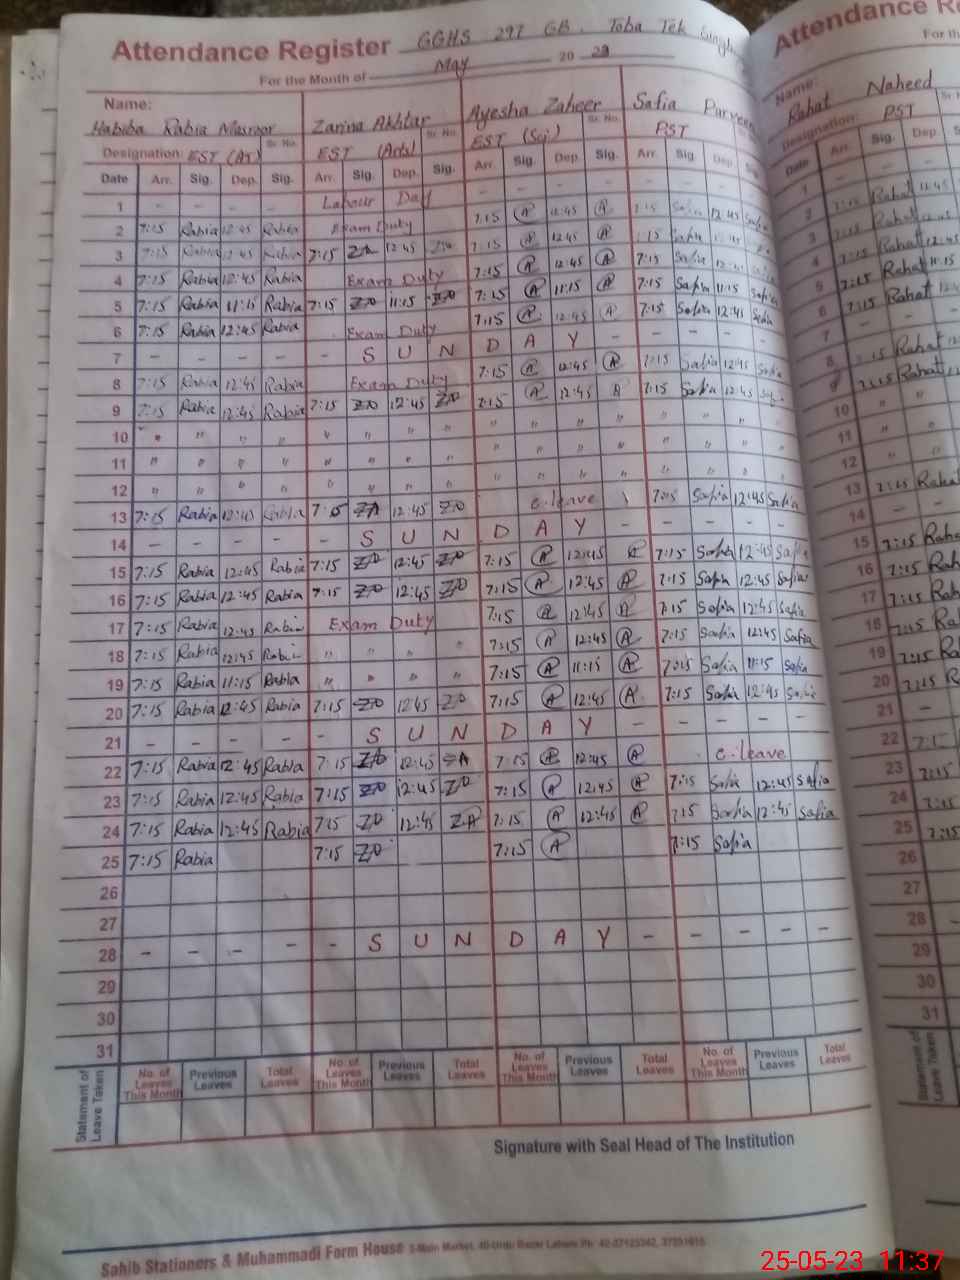 Attendance Register GGHS 297 GB. Toba Tek Singh
For the Month of May 20 23
Name: Habiba Rabia Masroor Zarina Akhtar Ayesha Zaheer Safia Parveen
Designation: EST (Ar) Sr. No. EST (Arts) Sr. No. EST (Sci) Sr. No. PST
Date Arr. Sig. Dep. Sig. Arr. Sig. Dep. Sig. Arr. Sig. Dep. Sig. Arr. Sig. Dep.
1 - - - - Labour Day - - - - - - -
2 7:15 Rabia 12:45 Rabia Exam Duty 7:15 A 12:45 A 7:15 Safia 12:45 Safia
3 7:15 Rabia 12:45 Rabia 7:15 ZA 12:45 ZA 7:15 A 12:45 A 7:15 Safia
4 7:15 Rabia 12:45 Rabia Exam Duty 7:15 A 12:45 A 7:15 Safia 12:45
5 7:15 Rabia 11:15 Rabia 7:15 ZA 11:15 ZA 7:15 A 11:15 A 7:15 Safia 11:15 Safia
6 7:15 Rabia 12:45 Rabia Exam Duty 7:15 A 12:45 A 7:15 Safia 12:45 Safia
7 - - - - - S U N D A Y - - - -
8 7:15 Rabia 12:45 Rabia Exam Duty 7:15 A 12:45 A 7:15 Safia 12:45 Safia
9 7:15 Rabia 12:45 Rabia 7:15 ZA 12:45 ZA 7:15 A 12:45 A 7:15 Safia 12:45
10 " " " " " " " " " " " " " " "
11 " " " " " " " " " " " " " " "
12 " " " " " " " " " " " " " " "
13 7:15 Rabia 12:45 Rabia 7:15 ZA 12:45 ZA c.leave 7:15 Safia 12:45 Safia
14 - - - - - S U N D A Y - - - -
15 7:15 Rabia 12:45 Rabia 7:15 ZA 12:45 ZA 7:15 A 12:45 A 7:15 Safia 12:45 Safia
16 7:15 Rabia 12:45 Rabia 7:15 ZA 12:45 ZA 7:15 A 12:45 A 7:15 Safia 12:45 Safia
17 7:15 Rabia 12:45 Rabia Exam Duty 7:15 A 12:45 A 7:15 Safia 12:45 Safia
18 7:15 Rabia 12:45 Rabia " " " " 7:15 A 12:45 A 7:15 Safia 12:45 Safia
19 7:15 Rabia 11:15 Rabia " " " " 7:15 A 11:15 A 7:15 Safia 11:15 Safia
20 7:15 Rabia 12:45 Rabia 7:15 ZA 12:45 ZA 7:15 A 12:45 A 7:15 Safia 12:45 Safia
21 - - - - - S U N D A Y - - - - -
22 7:15 Rabia 12:45 Rabia 7:15 ZA 12:45 ZA 7:15 A 12:45 A c.leave
23 7:15 Rabia 12:45 Rabia 7:15 ZA 12:45 ZA 7:15 A 12:45 A 7:15 Safia 12:45 Safia
24 7:15 Rabia 12:45 Rabia 7:15 ZA 12:45 ZA 7:15 A 12:45 A 7:15 Safia 12:45 Safia
25 7:15 Rabia 7:15 ZA 7:15 A 7:15 Safia
26
27
28 - - - - - S U N D A Y - - - - -
29
30
31
Statement of Leave Taken
No. of Leaves This Month Previous Leaves Total Leaves No. of Leaves This Month Previous Leaves Total Leaves No. of Leaves This Month Previous Leaves Total Leaves No. of Leaves This Month Previous Leaves Total Leaves
Signature with Seal Head of The Institution
Sahib Stationers & Muhammadi Form House
Attendance
For th
Name: Rahat Naheed
Designation: PST
Date Arr. Sig. Dep.
1
2 7:15 Rahat 12:45
3 Rahat
4 Rahat 12:45
5 7:15 Rahat 11:15
6 7:15 Rahat
7
8 7:15 Rahat
9 7:15 Rahat
10 " "
11 " "
12 " "
13 7:15
14 -
15 7:15
16 7:15
17 7:15
18 7:15
19 7:15
20 7:15
21 -
22
23 7:15
24
25 7:15
26
27
28 -
29
30
31
Statement of Leave Taken
25-05-23 11:37